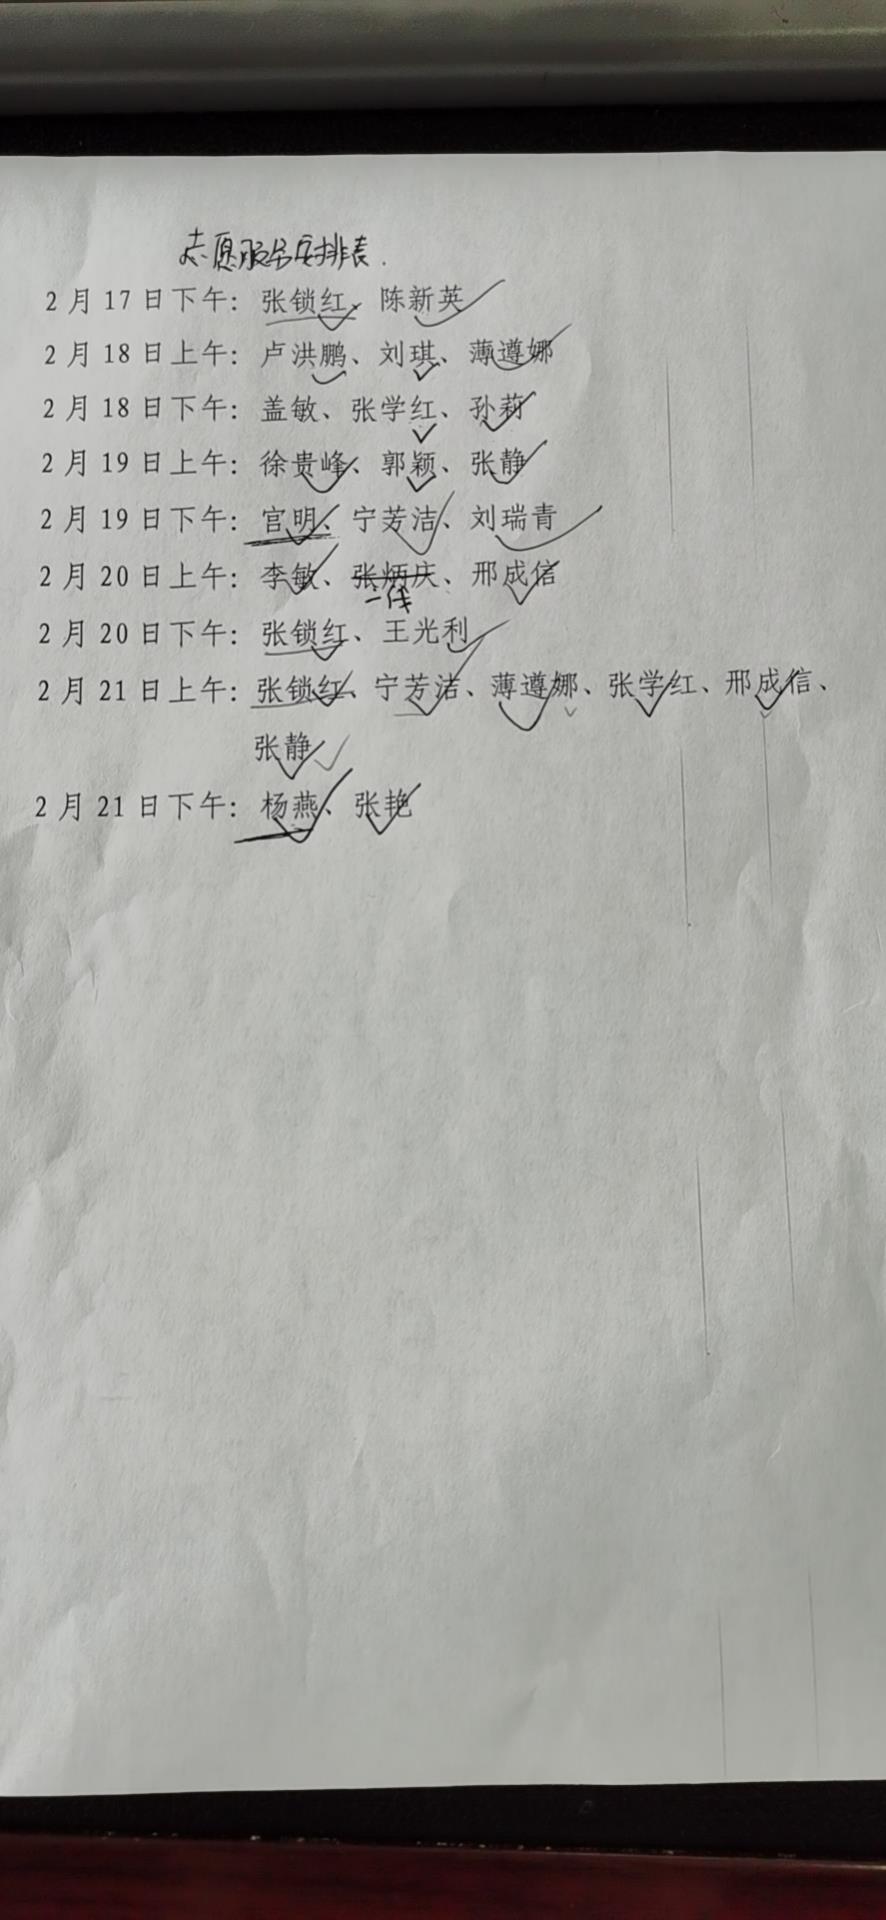 志愿服务安排表.
2月17日下午：张锁红、陈新英
2月18日上午：卢洪鹏、刘琪、薄遵娜
2月18日下午：盖敏、张学红、孙莉
2月19日上午：徐贵峰、郭颖、张静
2月19日下午：宫明、宁芳洁、刘瑞青
2月20日上午：李敏、张炳庆、邢成信
一线
2月20日下午：张锁红、王光利
2月21日上午：张锁红、宁芳洁、薄遵娜、张学红、邢成信、
张静
2月21日下午：杨燕、张艳